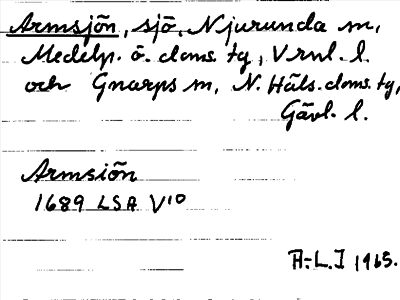 Armsjön, sjö, Njurunda sn,
Medelp. ö. doms. tg, Vrnl. l.
och Gnarps sn, N. Häls. doms. tg,
Gävl. l.
Armsiön
1689 LSA V10
A.-L.J 1965.